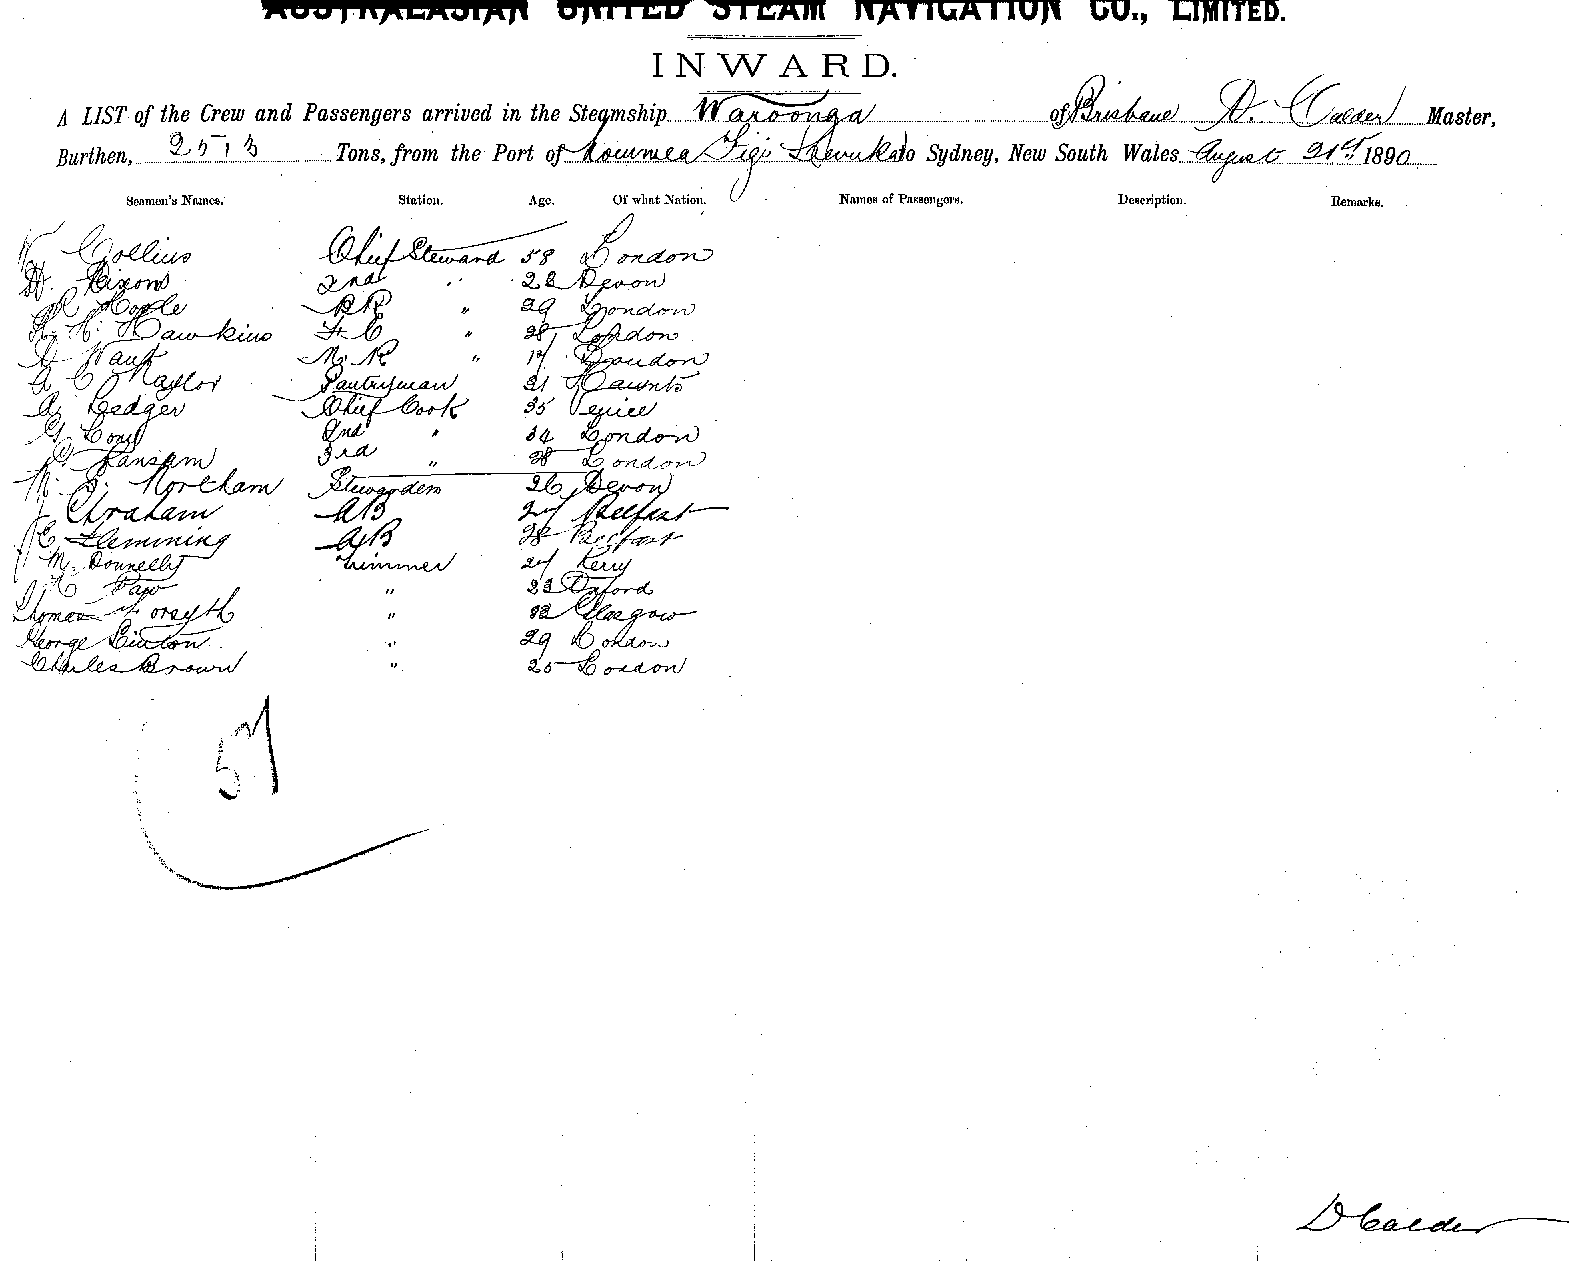 AUSTRALASIAN UNITED STEAM NAVIGATION CO., LIMITED.
INWARD.
A LIST of the Crew and Passengers arrived in the Steamship Waroonga of Brisbane D. Calder Master,
Burthen, 2513 Tons, from the Port of Noumea Fiji Levuka to Sydney, New South Wales August 21st 1890
Seamen's Names. Station. Age. Of what Nation. Names of Passengers. Description. Remarks.
Collins Chief Steward 58 London
Dixons 2nd " 22 Devon
29 London
Hawkins " London
" 17
Pantryman 21 Haunts
A. Ledger Chief Cook 35 Venice
G. 2nd " 34 London
Ransam 3rd " 28 London
Stewardess 26 Devon
J Graham AB 27 Belfast
Flemming AB 28 Belfast
M. Donnelly Trimmer 27 Kerry
" 23 Oxford
Thomas Forsyth " 32 Glasgow
George Linton " 29 London
Charles Brown " 25 London
57
D Calder